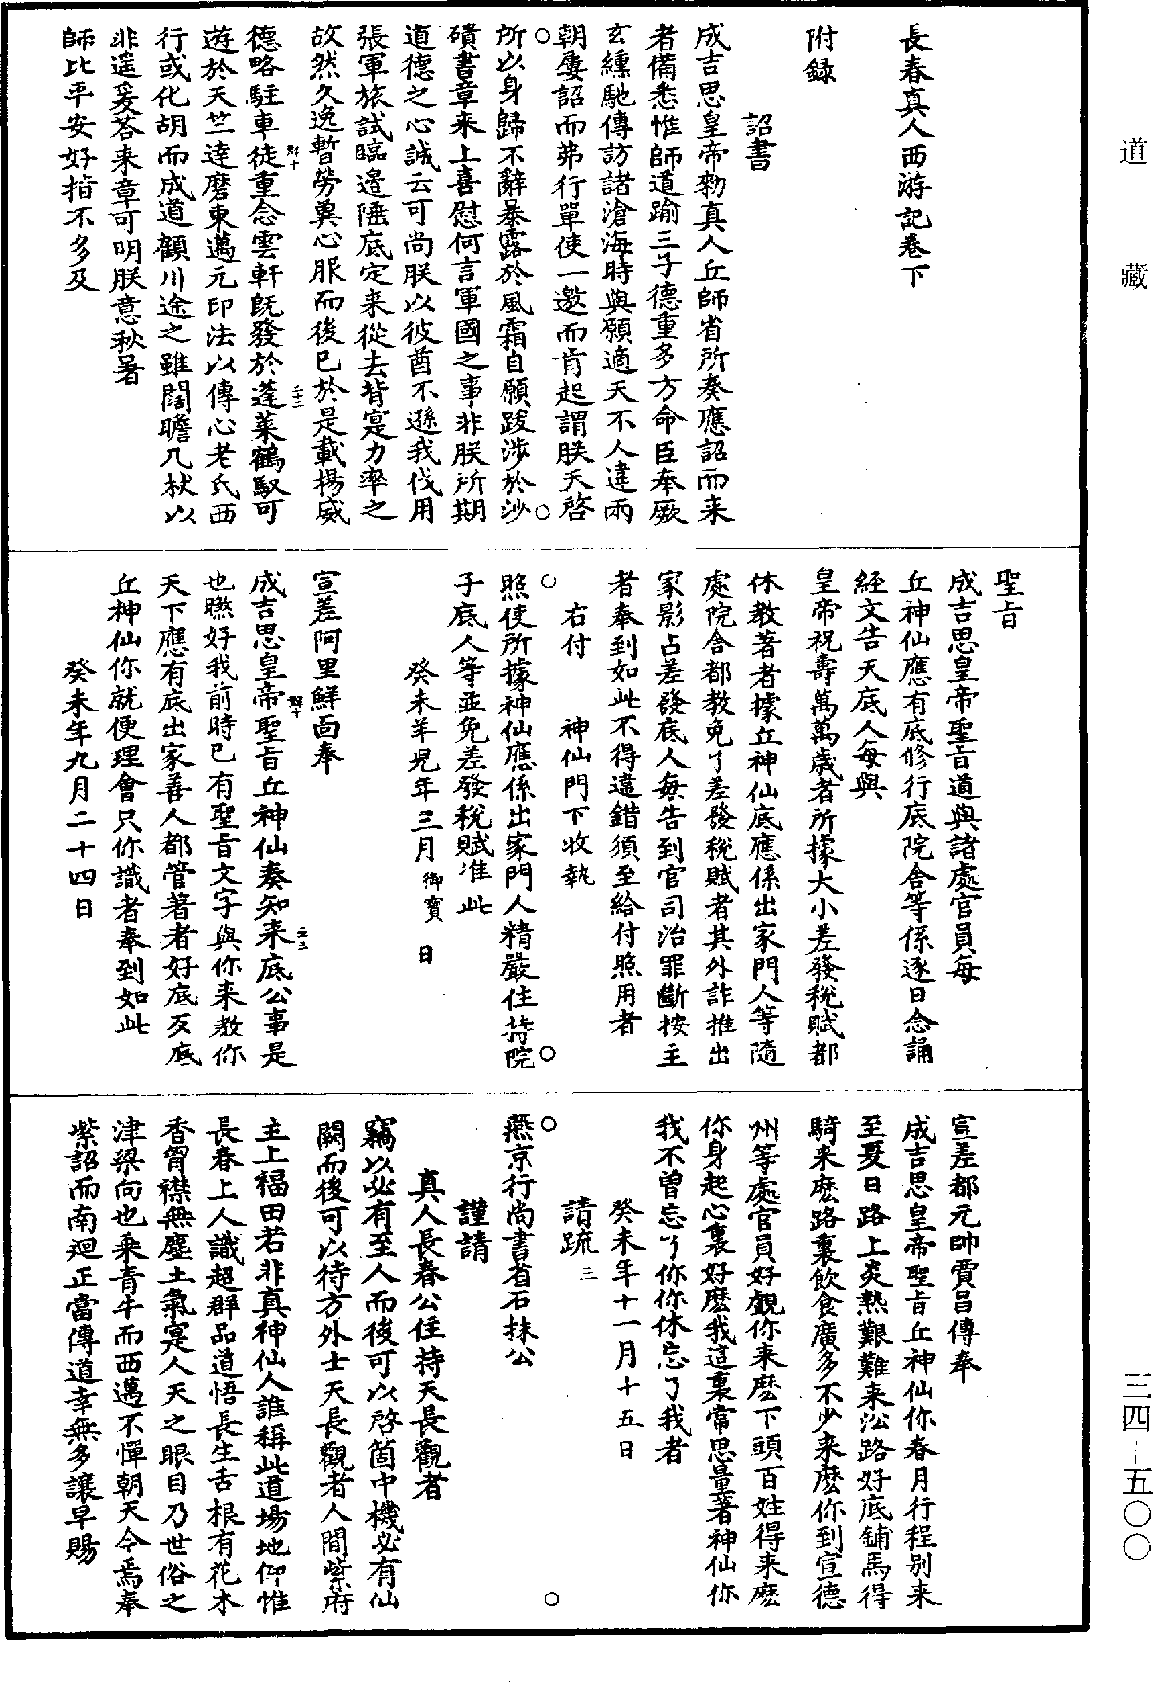 道藏
三四–五〇〇
長春真人西游記卷下
附録
詔書
成吉思皇帝勅真人丘師省所奏應詔而来
者備悉惟師道踰三子德重多方命臣奉厥
玄纁馳傳訪諸滄海時與願適天不人違兩
朝屢詔而弗行單使一邀而肯起謂朕天啓
所以身歸不辭暴露於風霜自願跋涉於沙
磧書章来上喜慰何言軍國之事非朕所期
道德之心誠云可尚朕以彼酋不遜我伐用
張軍旅試臨邊陲底定来從去背寔力率之
故然久逸暫勞冀心服而後已於是載揚威
德略駐車徒重念雲軒旣發於蓬萊鶴馭可
遊於天竺達磨東邁元印法以傳心老氏西
行或化胡而成道顧川途之雖闊瞻几杖以
非遥爰荅来章可明朕意秋暑
師比平安好指不多及
聖旨
成吉思皇帝聖旨道與諸處官員每
丘神仙應有底修行底院舍等係逐日念誦
經文告天底人每與
皇帝祝壽萬萬歲者所據大小差發稅賦都
休教著者據丘神仙底應係出家門人等隨
處院舍都教免了差發稅賦者其外詐推出
家影占差發底人每告到官司治罪斷按主
者奉到如此不得違錯須至給付照用者
右付　神仙門下收執
照使所據神仙應係出家門人精嚴住持院
子底人等並免差發稅賦准此
癸未羊兒年三月御寶　日
宣差阿里鮮面奉
成吉思皇帝聖旨丘神仙奏知来底公事是
也𤍞好我前時已有聖旨文字與你来教你
天下應有底出家善人都管著者好底歹底
丘神仙你就便理會只你識者奉到如此
癸未年九月二十四日
宣差都元帥賈昌傳奉
成吉思皇帝聖旨丘神仙你春月行程別来
至夏日路上炎熱艱難来沿路好底鋪馬得
騎来麽路裏飲食廣多不少来麽你到宣德
州等處官員好覷你来麽下頭百姓得来麽
你身起心裏好麽我這裏常思量著神仙你
我不曾忘了你你休忘了我者
癸未年十一月十五日
請疏三
燕京行尚書省石抹公
謹請
真人長春公住持天長觀者
竊以必有至人而後可以啓箇中機必有仙
闕而後可以待方外士天長觀者人間紫府
主上福田若非真神仙人誰稱此道場地仰惟
長春上人識超群品道悟長生舌根有花木
香胷襟無塵土氣寔人天之眼目乃世俗之
津梁向也乗青牛而西邁不憚朝天今焉奉
紫詔而南迴正當傳道幸無多讓早賜